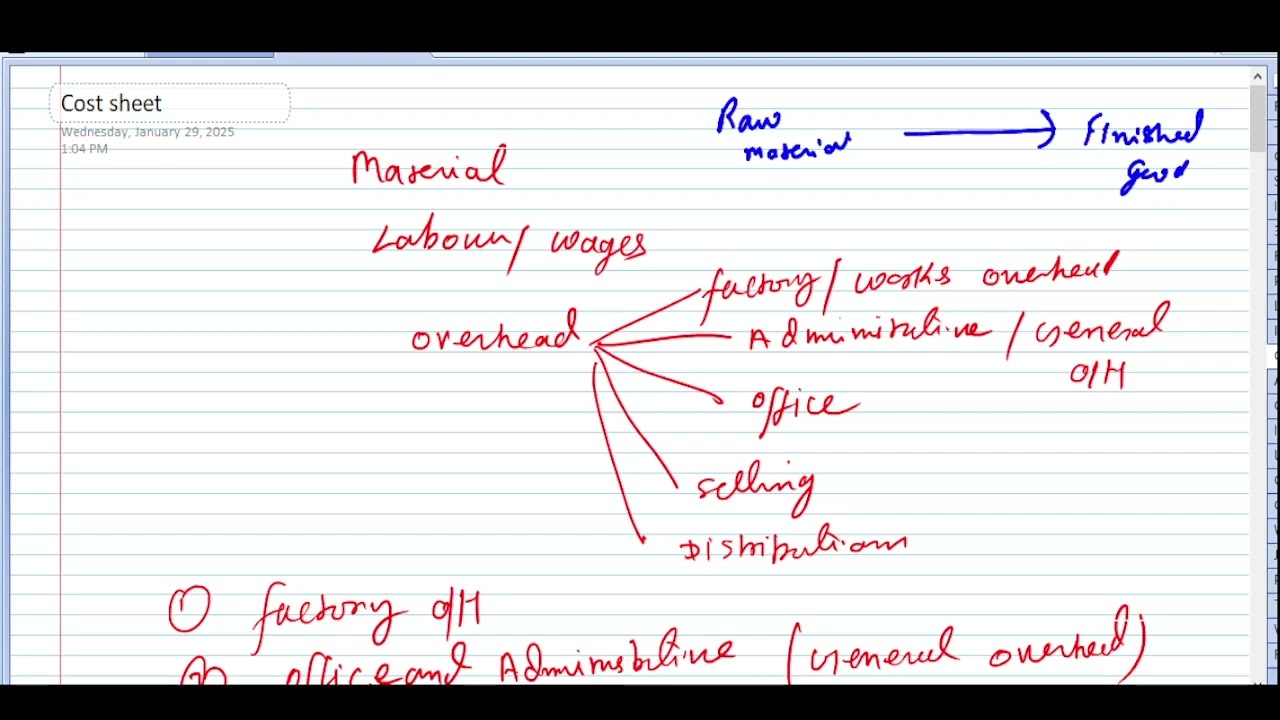 Cost sheet
Wednesday, January 29, 2025
1:04 PM
Raw material → Finished good
Material
Labour/ wages
overhead
factory/ works overhead
Administrative / General O/H
office
selling
Distribution
① factory o/H
② office and Administrative (General overhead)